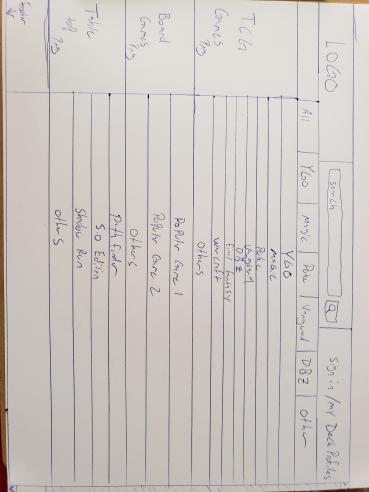 LOGO
serch
Sign in / my Deck Profiles
All YGO Magic Poke Vanguard DBZ Other
TCG
Games
Png
YGO
Magic
Poke
Vanguard
DBZ
Final Fantasy
Warcraft
Others
Board
Games
Png
Popular Game 1
Popular Game 2
Others
Table
top
Png
Path finder
5.0 Edition
Shadow Run
others
footer